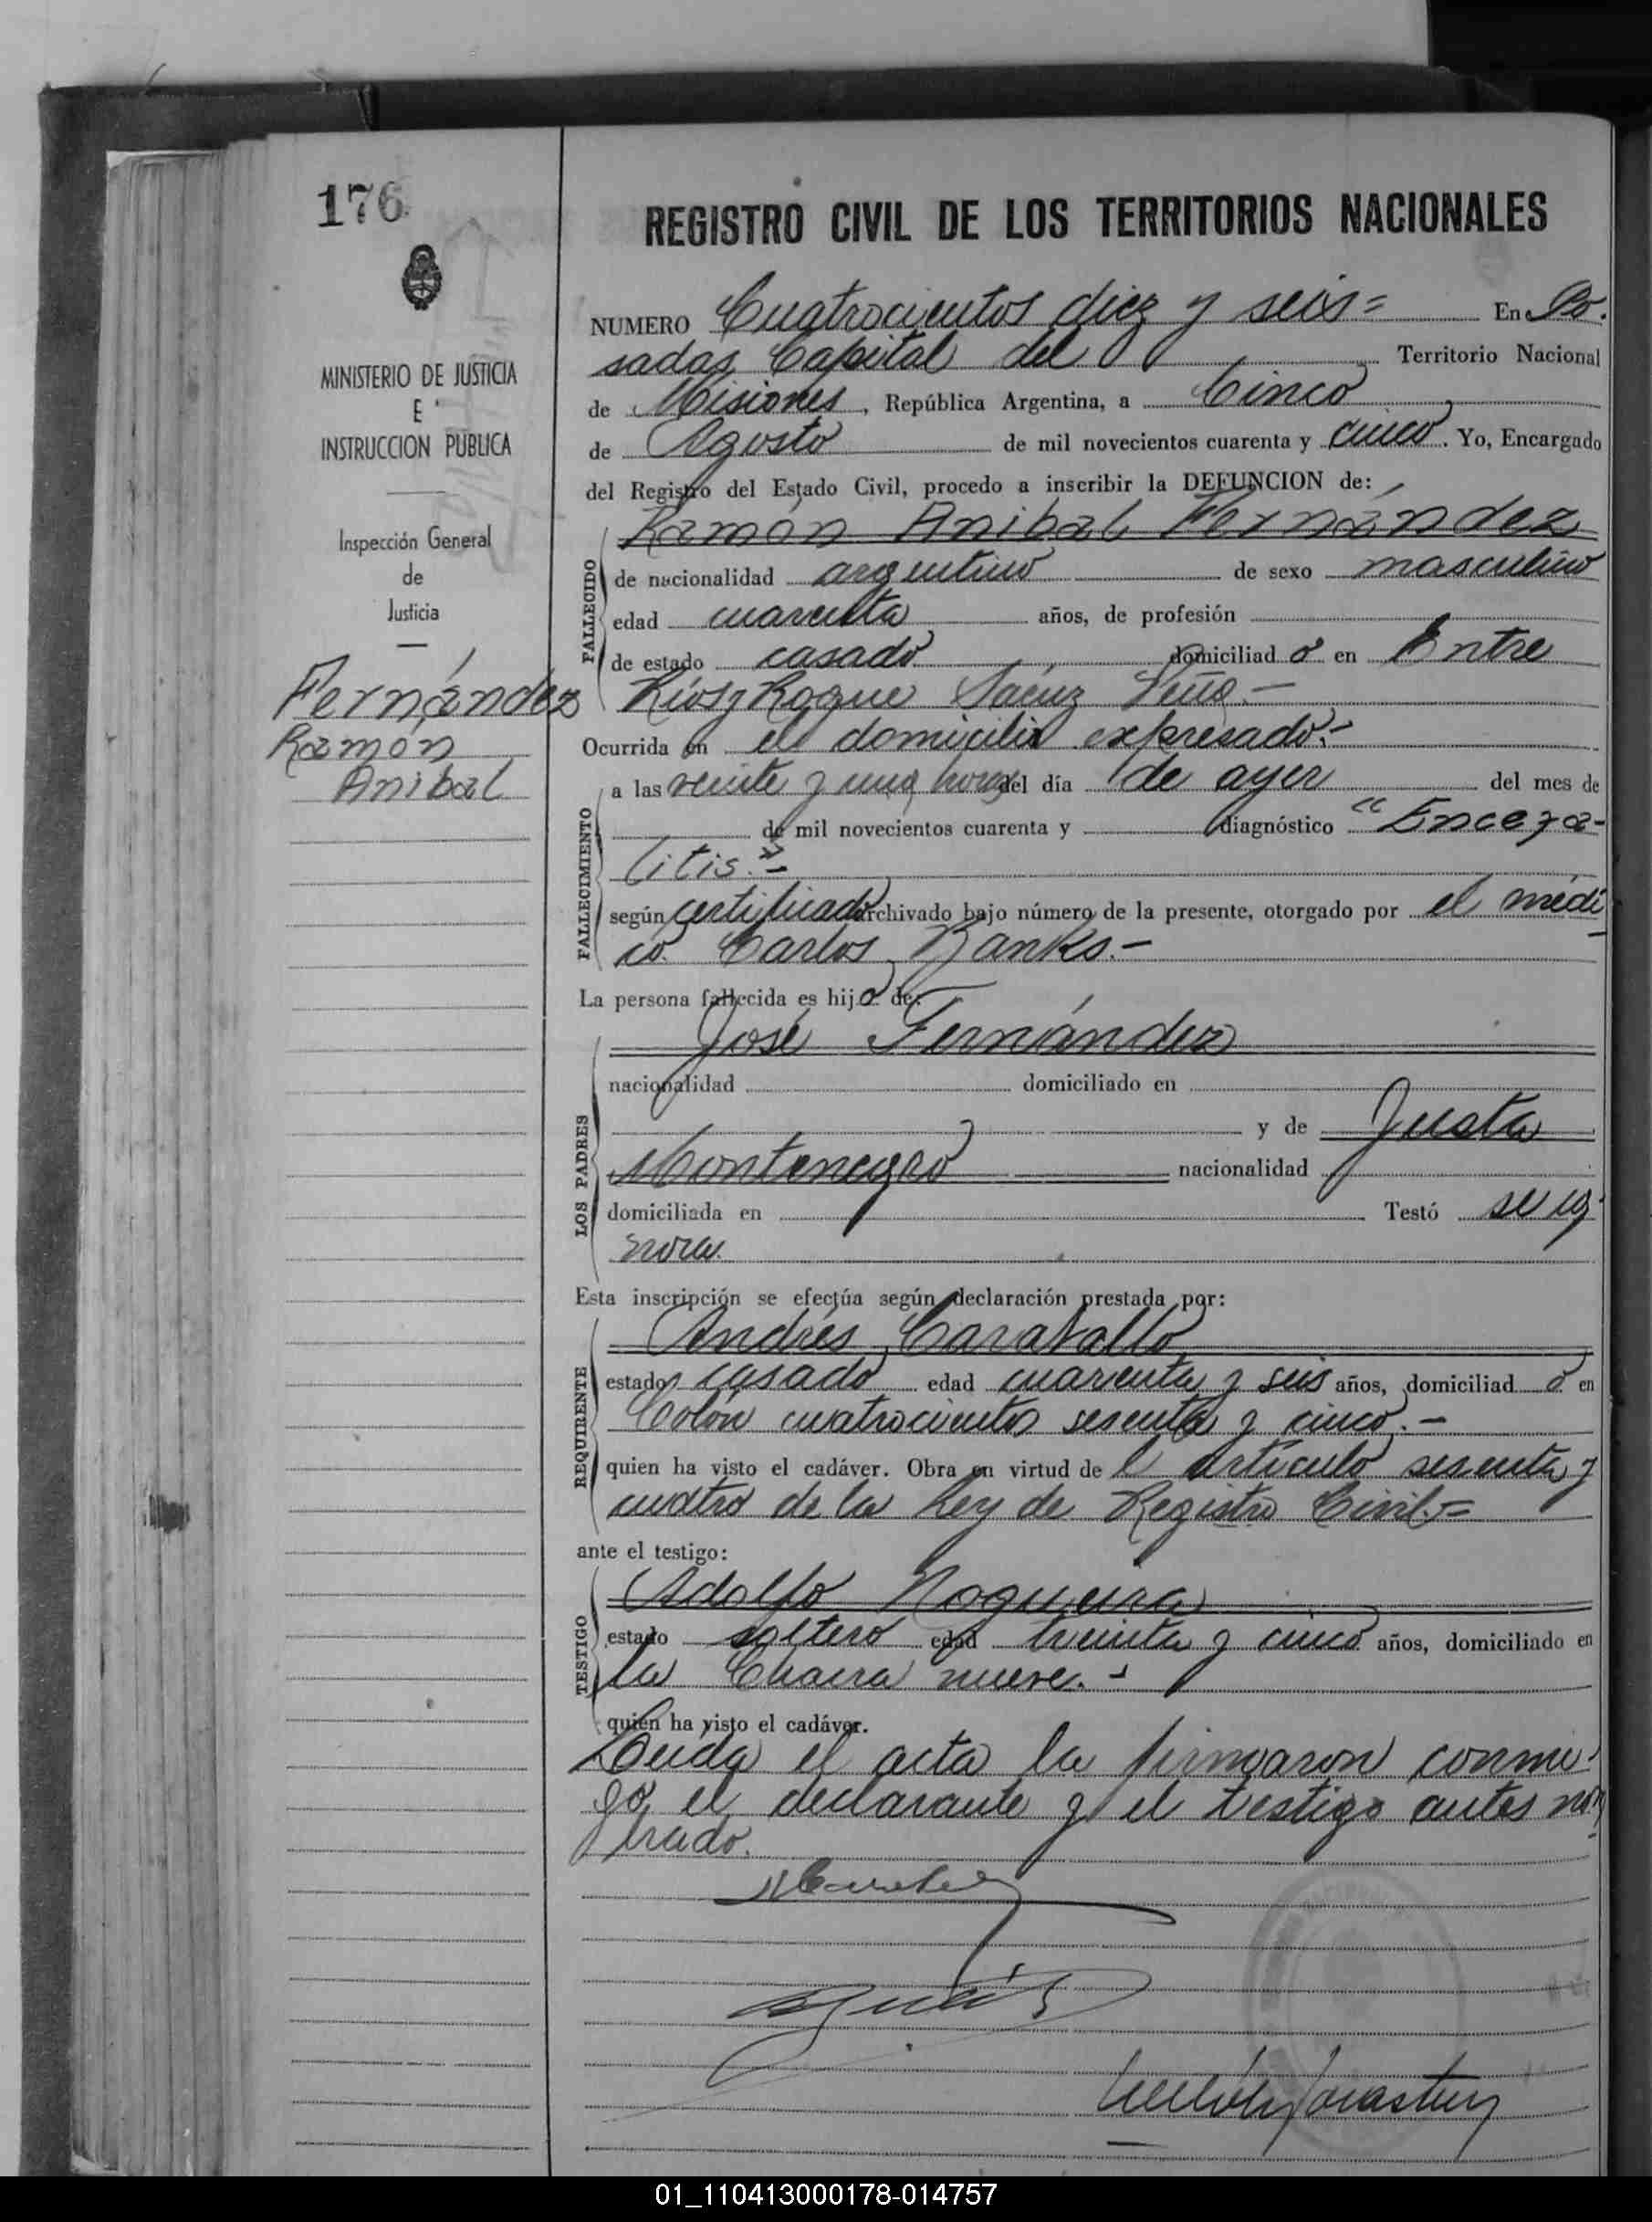 176
MINISTERIO DE JUSTICIA
E
INSTRUCCION PUBLICA
Inspección General
de
Justicia
Fernández
Ramón
Anibal
REGISTRO CIVIL DE LOS TERRITORIOS NACIONALES
NUMERO Cuatrocientos diez y seis= En Po.
sadas Capital del Territorio Nacional
de Misiones, República Argentina, a Cinco
de Agosto de mil novecientos cuarenta y cinco. Yo, Encargado
del Registro del Estado Civil, procedo a inscribir la DEFUNCION de:
FALLECIDO
Ramón Anibal Fernández
de nacionalidad argentino de sexo masculino
edad cuarenta años, de profesión
de estado casado domiciliad o en Entre
Ríos y Roque Saenz Peña.-
Ocurrida en el domicilio expresado.-
FALLECIMIENTO
a las veinte y una horas del día de ayer del mes de
de mil novecientos cuarenta y diagnóstico "Encefa-
litis."-
según certificado archivado bajo número de la presente, otorgado por el médi
co Carlos Banks.-
La persona fallecida es hijo de:
LOS PADRES
José Fernández
nacionalidad domiciliado en
y de Justa
Montenegro nacionalidad
domiciliada en Testó se ig
nora.
Esta inscripción se efectúa según declaración prestada por:
REQUIRENTE
Andrés Caraballo
estado casado edad cuarenta y seis años, domiciliad o en
Colón cuatrocientos sesenta y cinco.-
quien ha visto el cadáver. Obra en virtud de l artículo sesenta y
cuatro de la Ley de Registro Civil.=
ante el testigo:
TESTIGO
Adolfo Nogueira
estado soltero edad treinta y cinco años, domiciliado en
la Chacra nueve.-
quien ha visto el cadáver.
Leída el acta la firmaron conmi
go, el declarante y el testigo antes nom
brado.
01_110413000178-014757